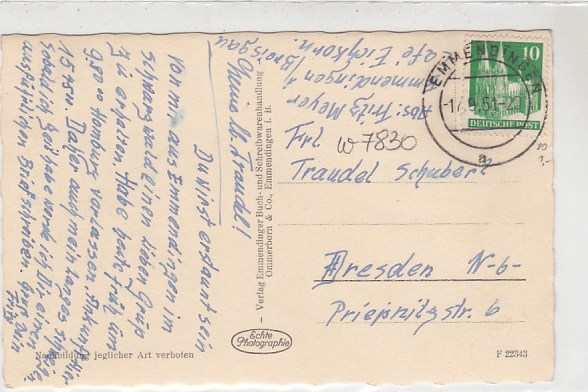 Meine lb. Traudel!
Du wirst erstaunt sein
von mir aus Emmendingen im
Schwarzwald einen lieben Gruß
zu erhalten. Habe heute früh um
9.80 Hamburg verlassen. Ankunft hier
Daher auch mein langes
Sobald ich Zeit habe werde ich Dir einen
ausführlichen Brief schreiben. Gruß Dein
Fritz
Abs: Fritz Meyer
Emmendingen /
Café Eichkorn.
/Breisgau
Frl
w 7830
Traudel Schubert
Dresden N-6-
Prießnitzstr. 6
EMMENDINGEN
-17.9.51-
a
10
DEUTSCHE POST
80
1,-
– Verlag Emmendinger Buch- und Schreibwarenhandlung
Ommerborn & Co., Emmendingen i. B.
Echte
Photographie
Nachbildung jeglicher Art verboten
F 22343